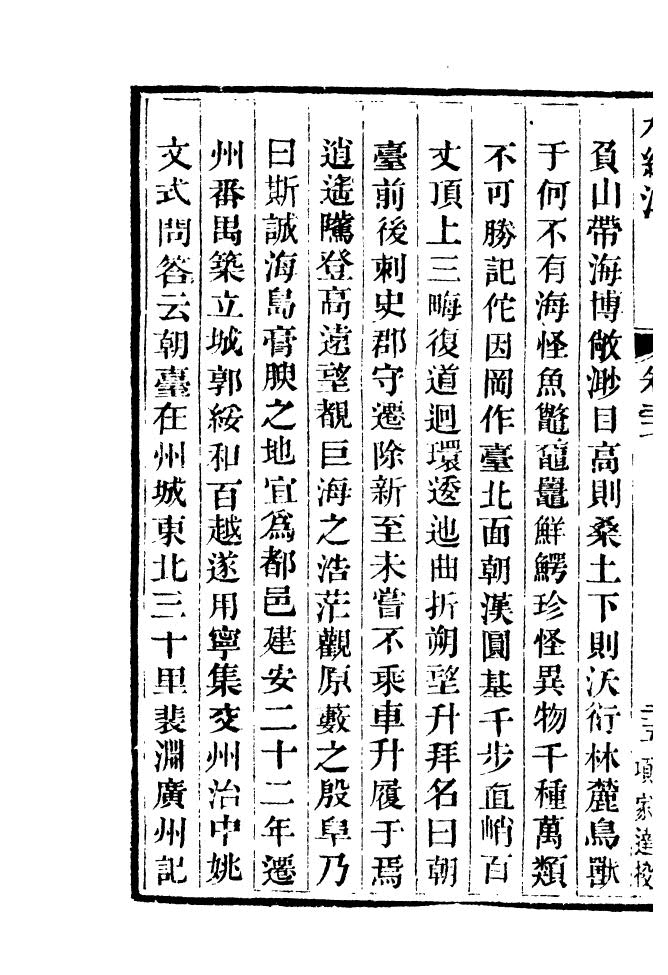 水經注
卷三
二五
項家達校
負山帶海博敞渺目高則桑土下則沃衍林麓鳥獸
于何不有海怪魚鼈黿鼉鮮鰐珍怪異物千種萬類
不可勝記佗因岡作臺北面朝漢圓基千步直峭百
丈頂上三畮復道迴環逶迆曲折朔望升拜名曰朝
臺前後刺史郡守遷除新至未嘗不乘車升履于焉
逍遙隲登高遠望覩巨海之浩茫觀原藪之殷阜乃
曰斯誠海島膏腴之地宜爲都邑建安二十二年遷
州番禺築立城郭綏和百越遂用寧集交州治中姚
文式問答云朝臺在州城東北三十里裴淵廣州記